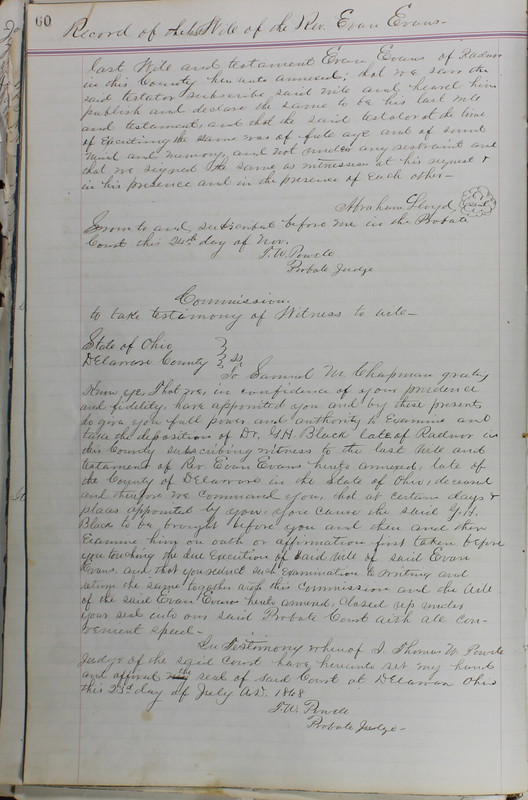 60
Record of the Will of the Rev. Evan Evans-
last Will and testament Evan Evans of Radnor
in this County hereunto annexed; that we saw the
said testator subscribe said will and heard him
publish and declare the same to be his last will
and testament, and that the said testator at the time
of executing the same was of full age and of sound
mind and memory and not under any restraint and
that we signed the same as witnesses at his request &
in his presence and in the presence of each other-
Abraham Lloyd seal
Sworn to and subscribed before me in the Probate
Court this 24th day of Nov.
T. W. Powell
Probate Judge
Commission.
to take testimony of Witness to will-
State of Ohio
Delaware County } ss
To Samuel M. Chapman greeting
Know ye, That we, in confidence of your prudence
and fidelity, have appointed you and by these presents
do give you full power and authority to Examine and
take the deposition of Dr. G.H. Black late of Radnor in
this County subscribing witness to the last Will and
testament of Rev Evan Evans hereto annexed, late of
the County of Delaware in the State of Ohio, deceased
and therefore we command you, that at certain days &
places appointed by you, you cause the said G.H.
Black to be brought before you and then and there
Examine him on oath or affirmation first taken before
you touching the due Execution of said Will of said Evan
Evans. and that you reduce such Examination to writing and
return the same together with this Commission and the Will
of the said Evan Evans hereto annexed, closed up under
your seal into our said Probate Court with all con-
venient speed-
In Testimony whereof I. Thomas W. Powell
Judge of the said Court have hereunto set my hand
and affixed the seal of said Court at Delaware Ohio
this 23d day of July A.D. 1868
T. W. Powell
Probate Judge-